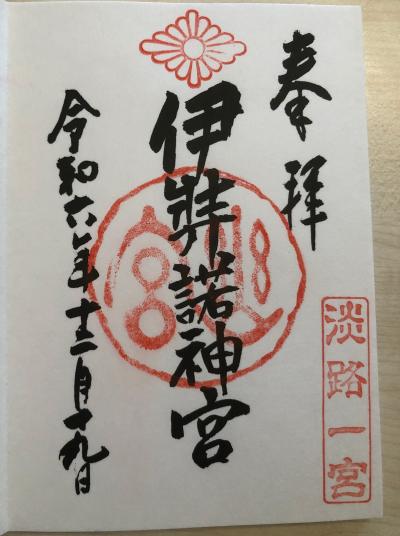 奉拝
淡路一宮
伊弉諾神宮
令和六年十二月十九日